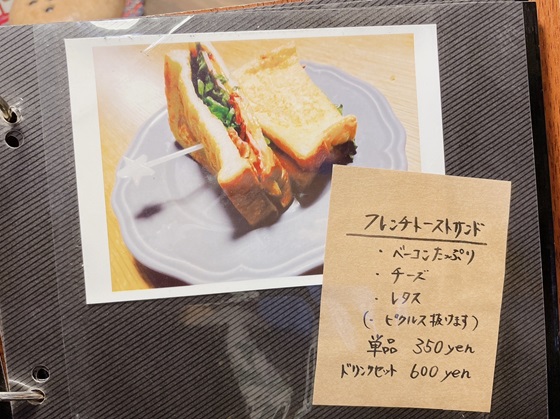 フレンチトーストサンド
・ベーコンたっぷり
・チーズ
・レタス
(・ピクルス抜けます)
単品 350yen
ドリンクセット 600yen